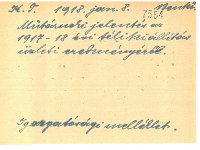 K. T. 1918. jan. 8. Benkó
7554
Műtárnoki jelentés az
1917-18 évi téli kiállítás
üzleti eredményéről.
Igazgatósági melléklet.